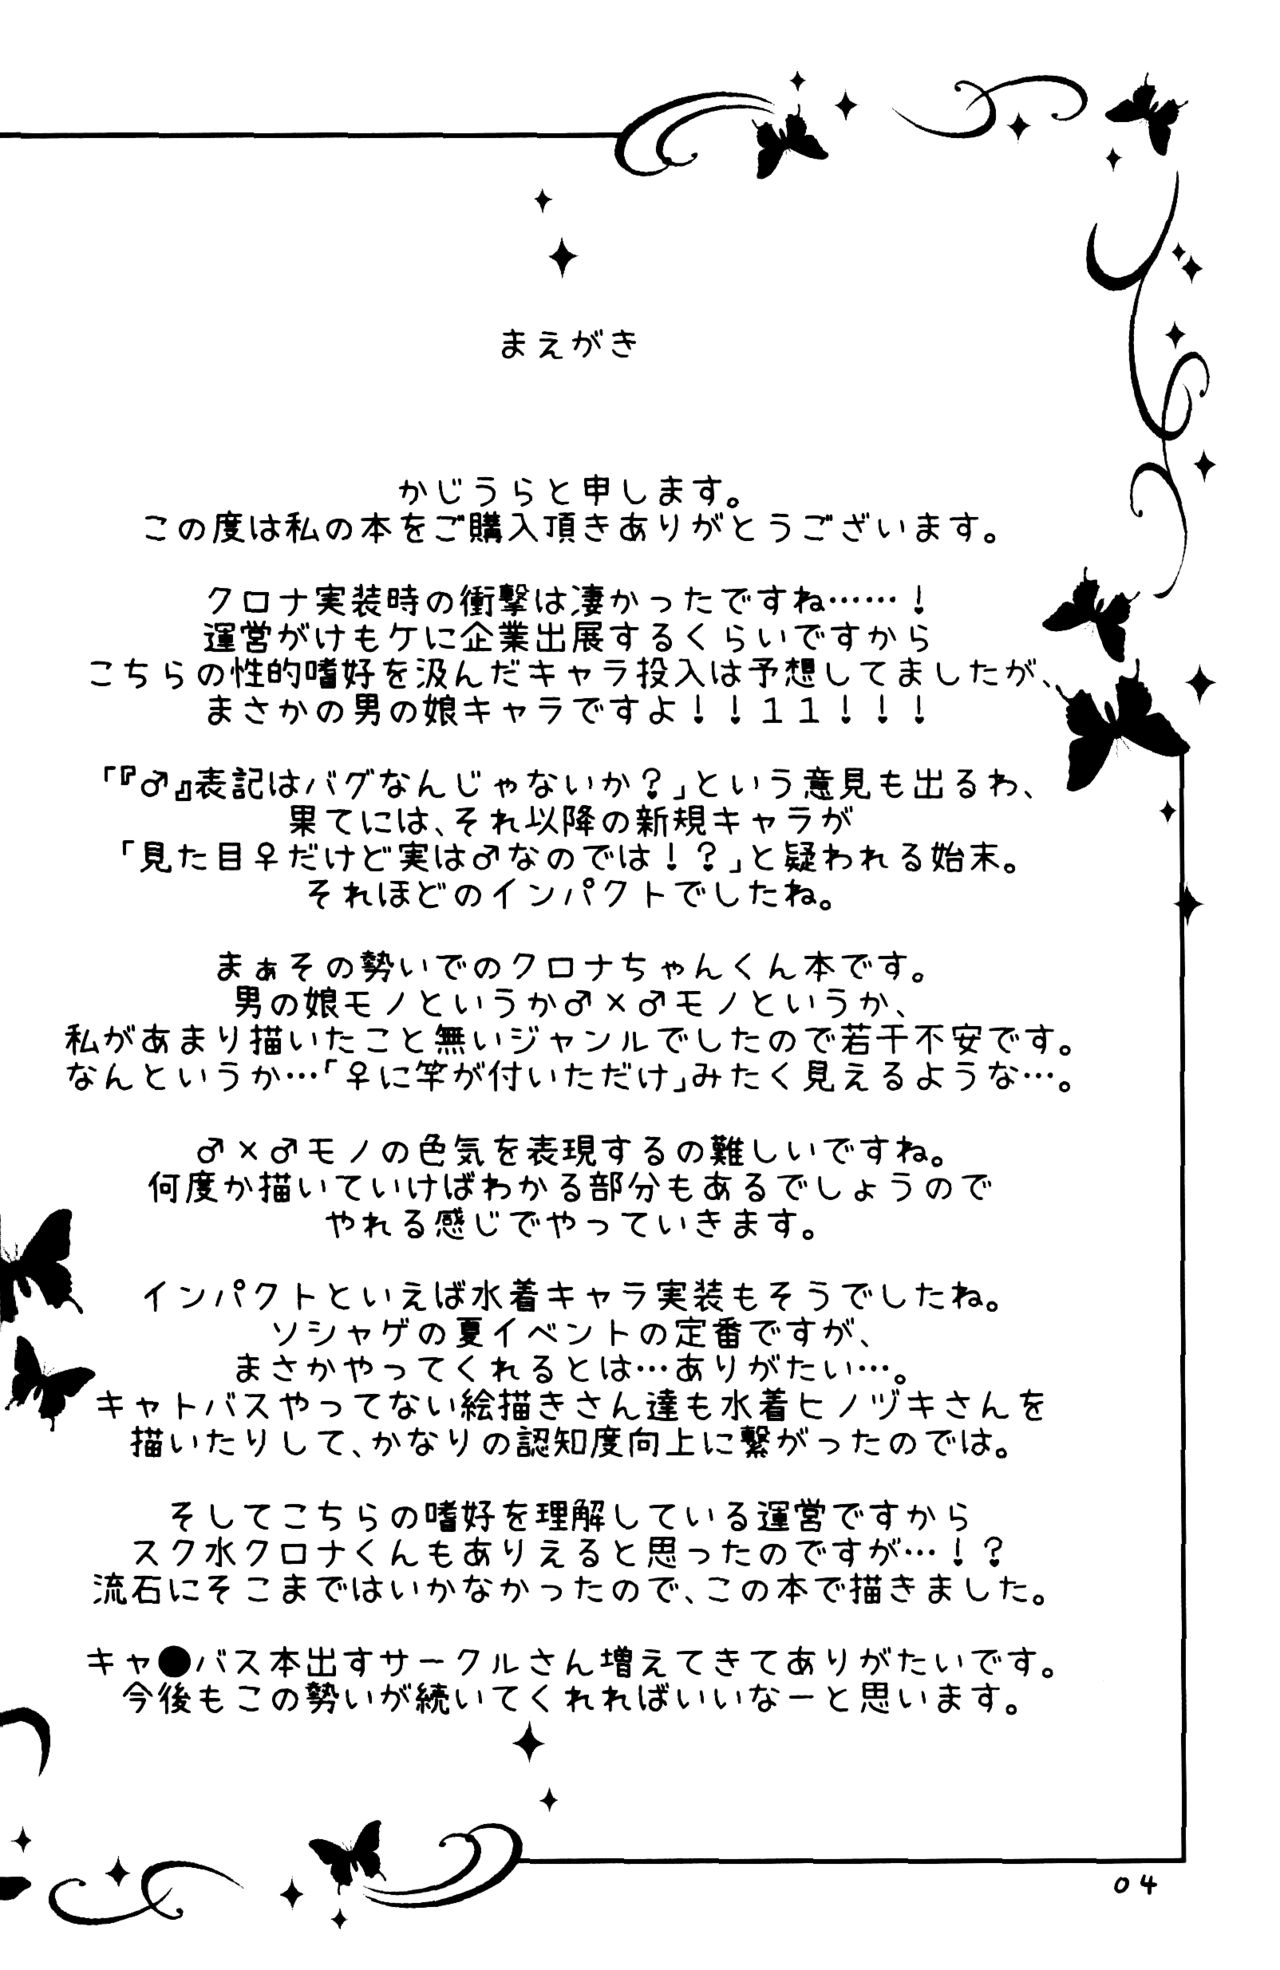 まえがき
かじうらと申します。
この度は私の本をご購入頂きありがとうございます。
クロナ実装時の衝撃は凄かったですね……！
運営がけもケに企業出展するくらいですから
こちらの性的嗜好を汲んだキャラ投入は予想してましたが、
まさかの男の娘キャラですよ！！１１！！！
「『♂』表記はバグなんじゃないか？」という意見も出るわ、
果てには、それ以降の新規キャラが
「見た目♀だけど実は♂なのでは！？」と疑われる始末。
それほどのインパクトでしたね。
まぁその勢いでのクロナちゃんくん本です。
男の娘モノというか♂×♂モノというか、
私があまり描いたこと無いジャンルでしたので若干不安です。
なんというか…「♀に竿が付いただけ」みたく見えるような…。
♂×♂モノの色気を表現するの難しいですね。
何度か描いていけばわかる部分もあるでしょうので
やれる感じでやっていきます。
インパクトといえば水着キャラ実装もそうでしたね。
ソシャゲの夏イベントの定番ですが、
まさかやってくれるとは…ありがたい…。
キャトバスやってない絵描きさん達も水着ヒノヅキさんを
描いたりして、かなりの認知度向上に繋がったのでは。
そしてこちらの嗜好を理解している運営ですから
スク水クロナくんもありえると思ったのですが…！？
流石にそこまではいかなかったので、この本で描きました。
キャ●バス本出すサークルさん増えてきてありがたいです。
今後もこの勢いが続いてくれればいいなーと思います。
04